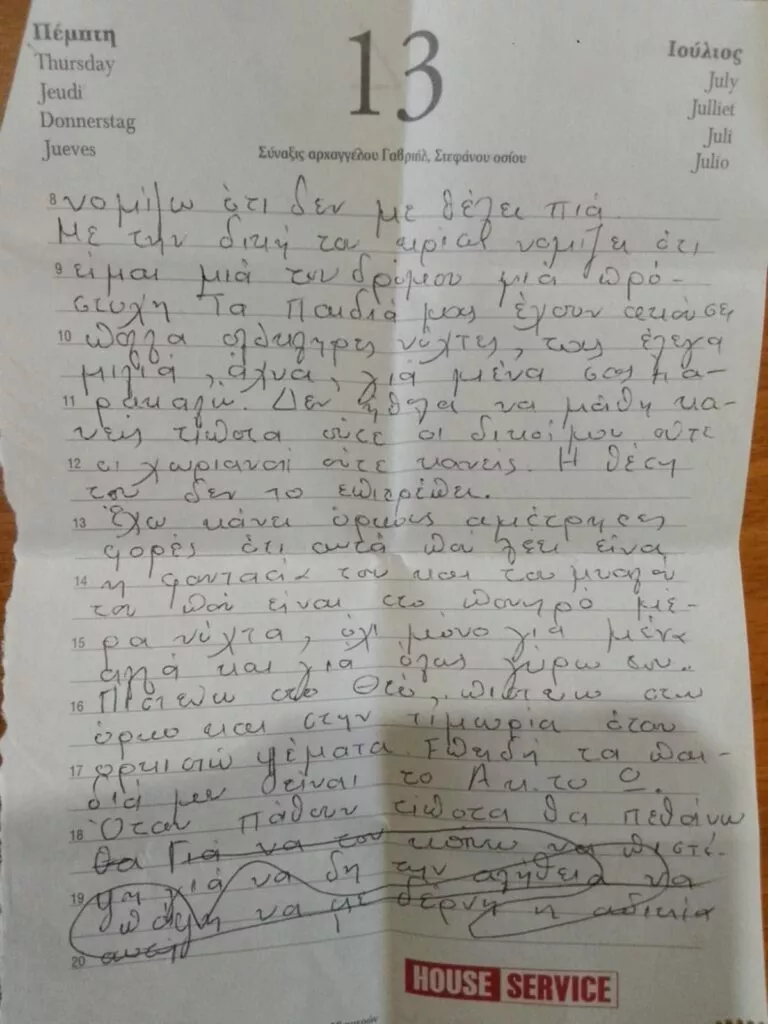 Πέμπτη
Thursday
Jeudi
Donnerstag
Jueves
13
Ιούλιος
July
Julliet
Juli
Julio
Σύναξις αρχαγγέλου Γαβριήλ, Στεφάνου οσίου
8 νομίζω ότι δεν με θέλει πιά
Με την δική του νομίζει ότι
9 είμαι μιά του δρόμου μιά πρό-
στυχη Τα Παιδιά μας έχουν ακούσει
10 πολλά ολόκληρες νύχτες, τους έλεγα
μιλιά, άχνα, γιά μένα σας πα-
11 ρακαλω. Δεν ήθελα να μάθη κα-
νείς τίποτα ούτε οι δικοί μου ούτε
12 οι χωριανοί ούτε κανείς. Η θέση
του δεν το επιτρέπει.
13 Έχω κάνει όρκους αμέτρητες
φορές ότι αυτά που λέει είναι
14 η φαντασία του και το μυαλό
του που είναι στο πονηρό μέ-
15 ρα νύχτα, όχι μόνο γιά μένα
αλλά και για όλους γύρω του..
16 Πιστεύω στο Θεό, πιστεύω στον
όρκο και στην τιμωρία όταν
17 ορκιστώ ψέματα. Επειδή τα παι-
διά μου θείναι το Α κ. το Ω.
18 Όταν πάθουν τίποτα θα πεθάνω
θα Γιά να τον κάνω να πιστέ-
19 ψη γιά να δη την αλήθεια να
πάψη να με δέρνη η αδικία
20 αυτή
HOUSE SERVICE